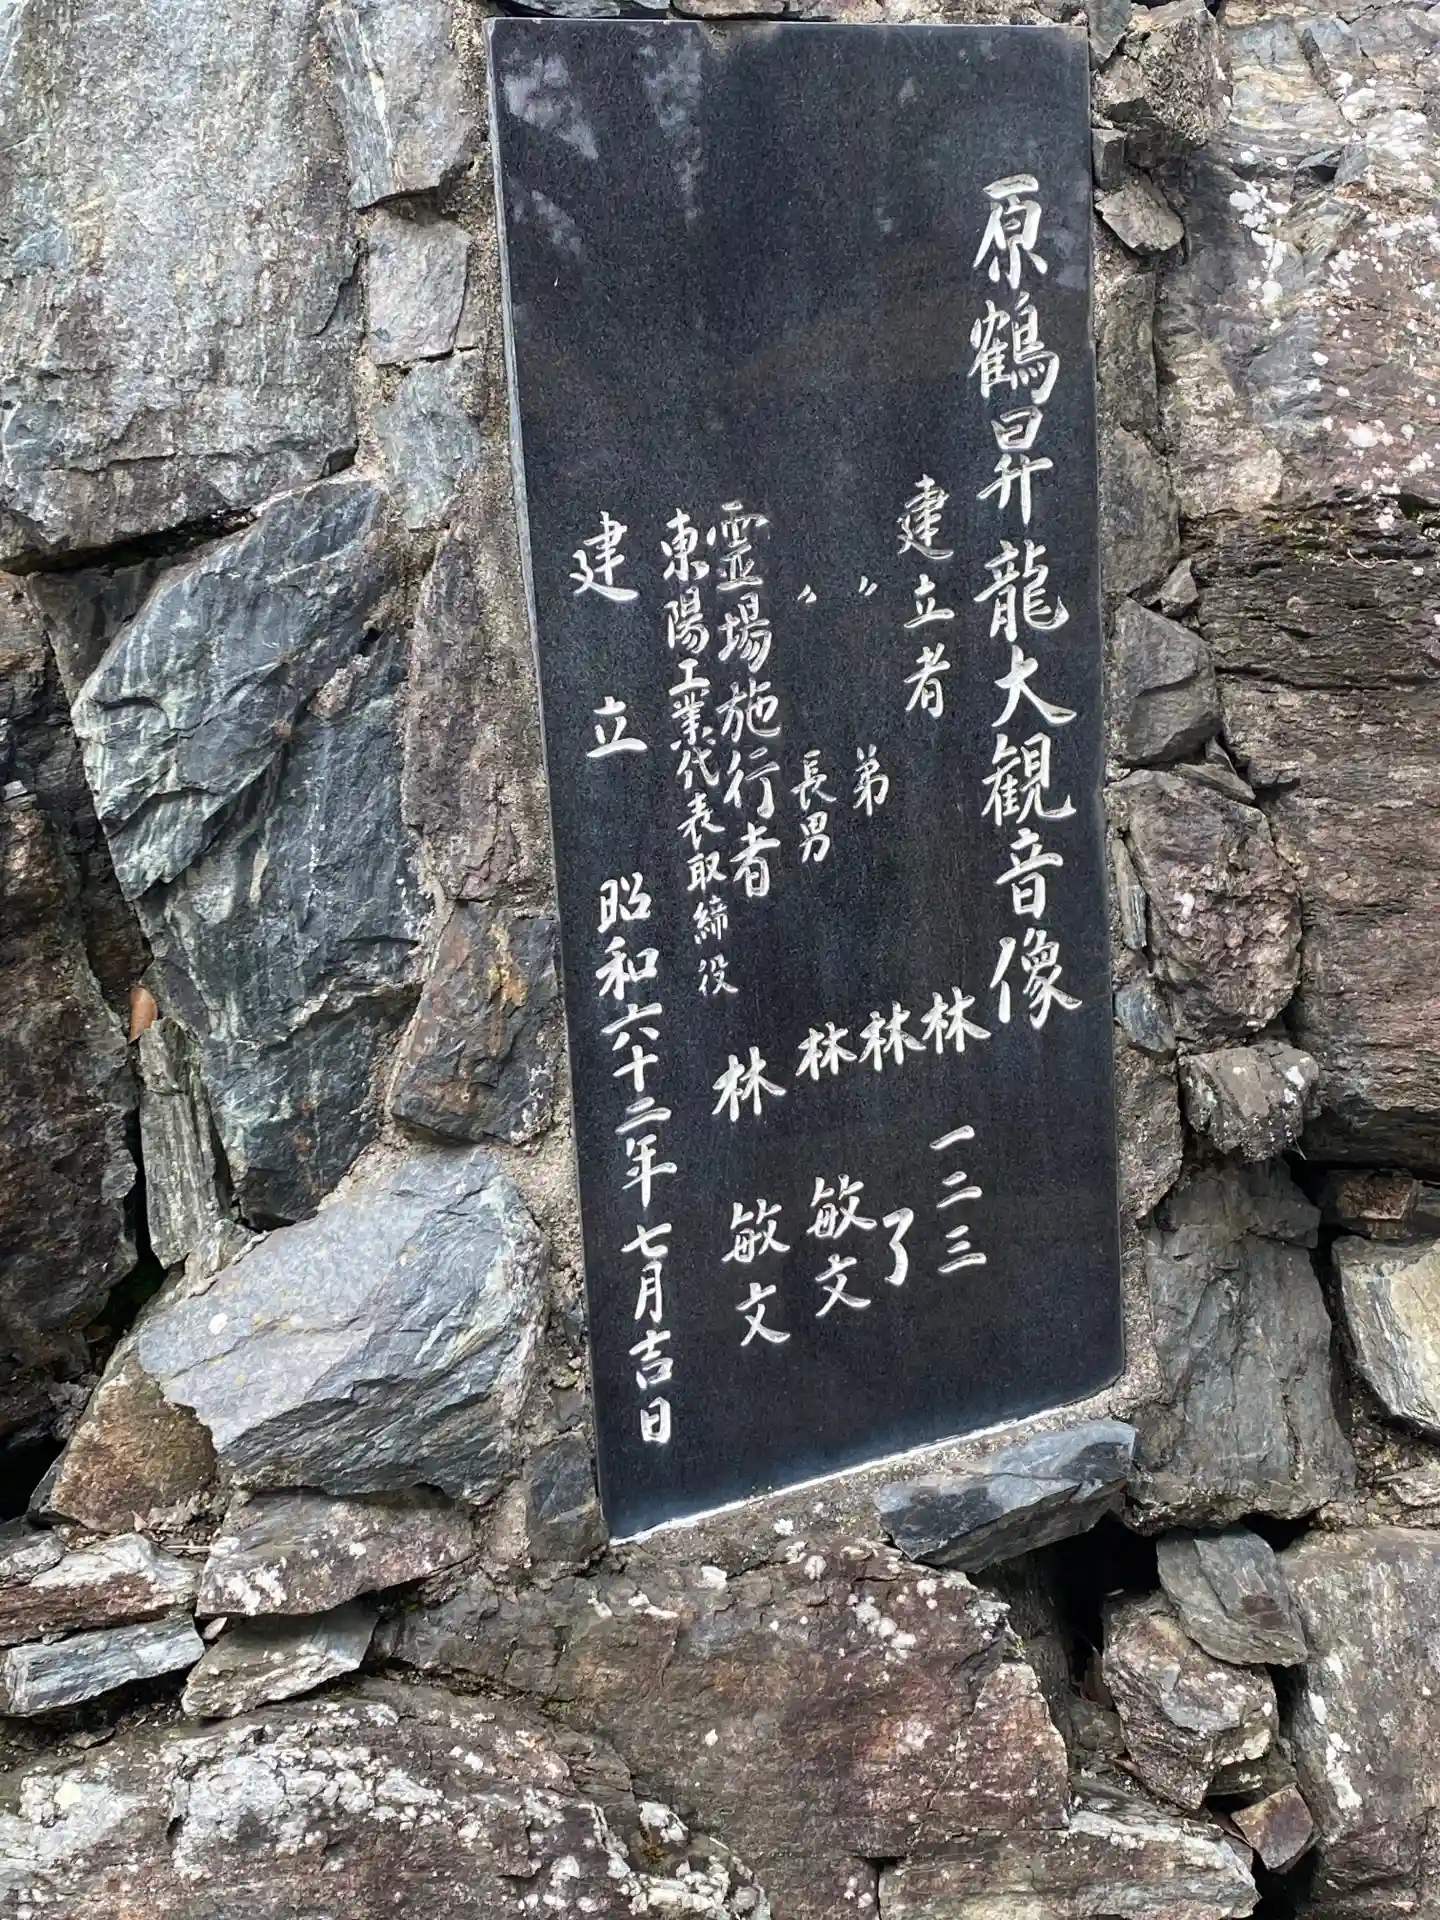 原鶴昇龍大観音像
建立者 林 一二三
〃 弟 林 了
〃 長男 林 敏文
霊場施行者
東陽工業代表取締役 林 敏文
建立 昭和六十二年七月吉日